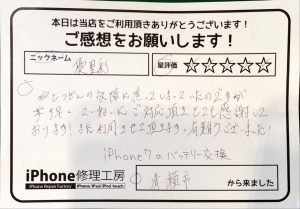 本日は当店をご利用頂きありがとうございます！
ご感想をお願いします！
ニックネーム
愛里彩
星評価 ☆☆☆☆☆
とつぜんの故障に焦ってしまっていたのですが
手早くていねいなご対応頂きとても感謝して
おります！また利用させて頂きます。有難うございました！
iPhone7のバッテリー交換
iPhone修理工房
iPhone Repair Factory
iPhone/iPad/iPod touch
清瀬市
から来ました